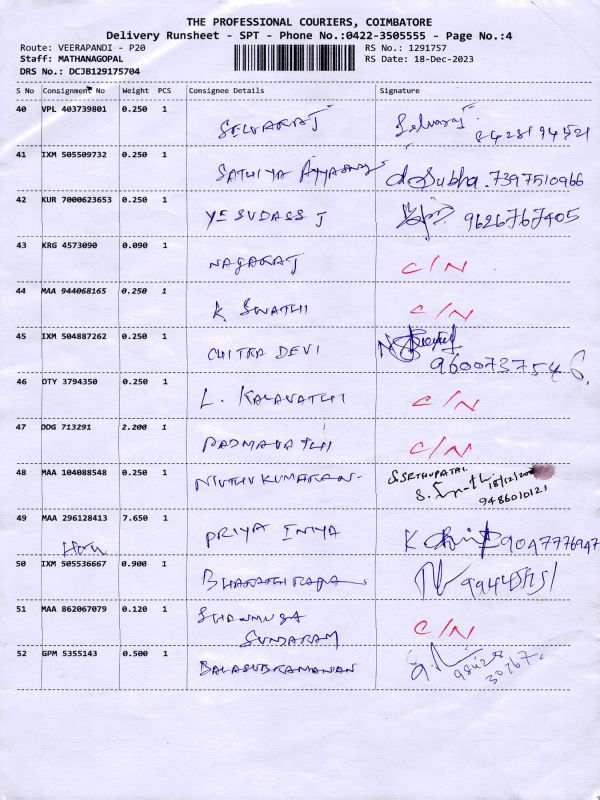 THE PROFESSIONAL COURIERS, COIMBATORE
Delivery Runsheet - SPT - Phone No.:0422-3505555 - Page No.:4
Route: VEERAPANDI - P20 RS No.: 1291757
Staff: MATHANAGOPAL RS Date: 18-Dec-2023
DRS No.: DCJB129175704
S No Consignment No Weight PCS Consignee Details Signature
40 VPL 403739801 0.250 1 SELVARAJ Selvaraj
41 IXM 505509732 0.250 1 SATHIYA Subha. 7397510966
42 KUR 7000623653 0.250 1 YESUDASS J 9626767405
43 KRG 4573090 0.090 1 NAGARAJ C/N
44 MAA 944068165 0.250 1 K SWATHI C/N
45 IXM 504887262 0.250 1 CHITRA DEVI
9600737546
46 OTY 3794350 0.250 1 L. KALAVATHI C/N
47 DDG 713291 2.200 1 PADMAVATHI C/N
48 MAA 104088548 0.250 1 NIVTHUKUMARAN S.SETHUPATHI.
18/12/202
9486010121
49 MAA 296128413 7.650 1 PRIYA INIYA K 9047776947
50 IXM 505536667 0.900 1 BHARATHIRAJA
51 MAA 862067079 0.120 1 SHANMUGA
SUNDARAM C/N
52 GPM 5355143 0.500 1 BALASUBRAMANIAN